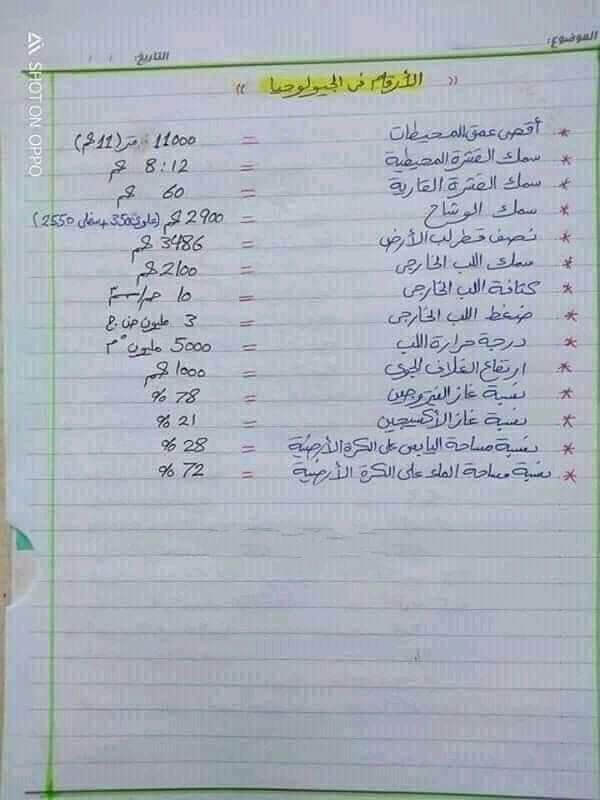 الموضوع:
التاريخ: / /
« الأرقام في الجيولوجيا »
* أقصى عمق المحيطات = 11000 متر (11 كم)
* سمك القشرة المحيطية = 8:12 كم
* سمك القشرة القارية = 60 كم
* سمك الوشاح = 2900 كم (علوى 350 + سفلى 2550)
* نصف قطر لب الأرض = 3486 كم
* سمك اللب الخارجى = 2100 كم
* كثافة اللب الخارجى = 10 جم/سم³
* ضغط اللب الخارجى = 3 مليون ض.ج
* درجة حرارة اللب = 5000 مليون °م
* ارتفاع الغلاف الجوى = 1000 كم
* نسبة غاز النيتروجين = 78 %
* نسبة غاز الأكسجين = 21 %
* نسبة مساحة اليابس على الكرة الأرضية = 28 %
* نسبة مساحة الماء على الكرة الأرضية = 72 %
SHOT ON OPPO